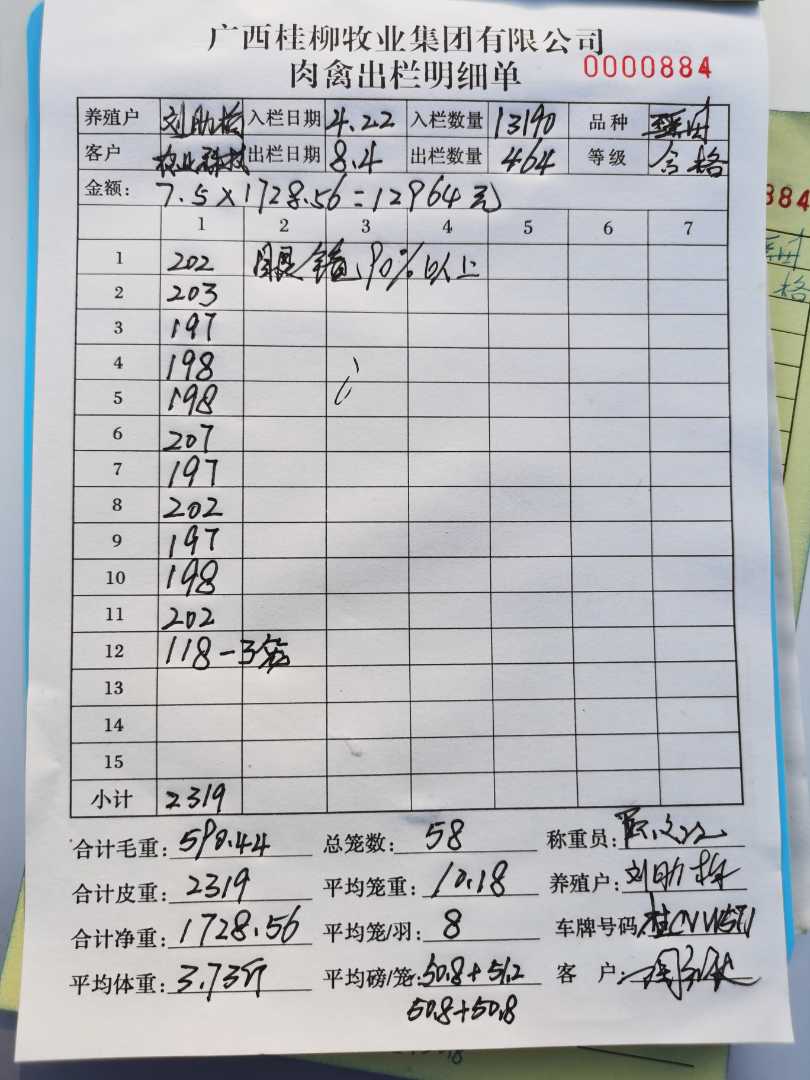 广西桂柳牧业集团有限公司
肉禽出栏明细单 0000884
养殖户 刘助 入栏日期 4.22 入栏数量 13190 品种
客户 牧业科技 出栏日期 8.4 出栏数量 464 等级 合格
金额: 7.5×1728.56=12964元
1 2 3 4 5 6 7
1 202 90%以上
2 203
3 197
4 198
5 198
6 207
7 197
8 202
9 197
10 198
11 202
12 118-3笼
13
14
15
小计 2319
合计毛重: 590.44 总笼数: 58 称重员:
合计皮重: 2319 平均笼重: 10.18 养殖户: 刘助
合计净重: 1728.56 平均笼/羽: 8 车牌号码
平均体重: 3.73斤 平均磅/笼: 50.8+51.2 客户:
50.8+50.8
884
格